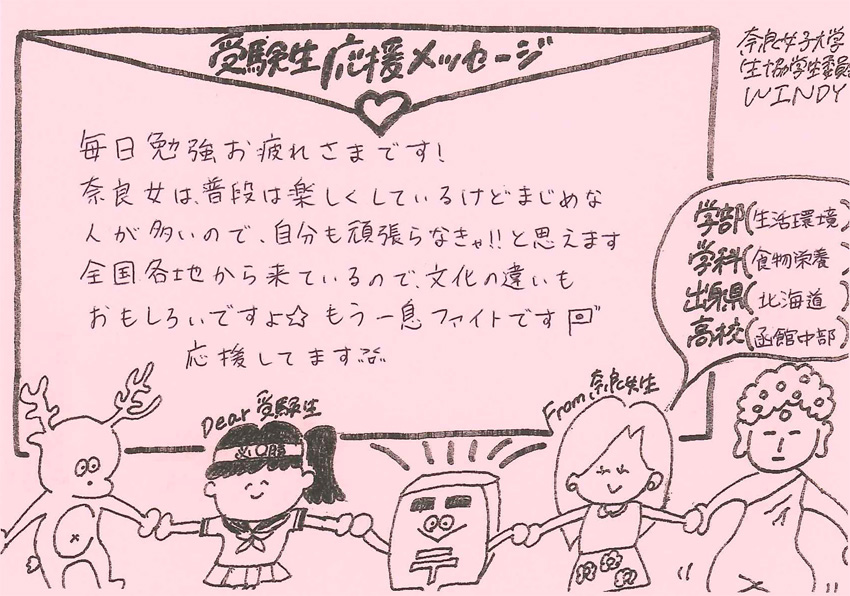 受験生応援メッセージ
奈良女子大学
生協学生委員
WINDY
毎日勉強お疲れさまです!
奈良女は、普段は楽しくしているけどまじめな
人が多いので、自分も頑張らなきゃ!!と思えます
全国各地から来ているので、文化の違いも
おもしろいですよ☆ もう一息ファイトです
応援してます
学部(生活環境)
学科(食物栄養)
出身県(北海道)
高校(函館中部)
Dear 受験生
From 奈良女生
必勝
〒